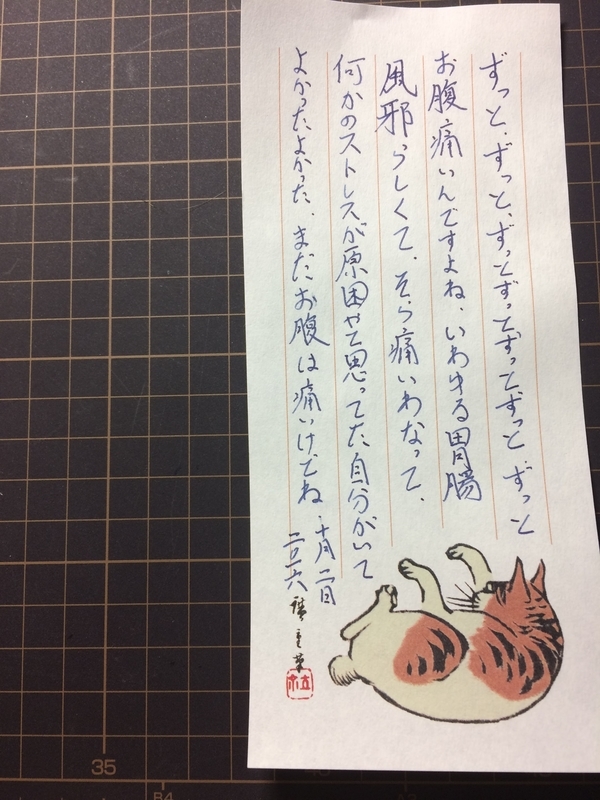 ずっと、ずっと、ずっとずっとずっとずっと、ずっと
お腹痛いんですよね、いわゆる胃腸
風邪らしくて、そら痛いわなって、
何かのストレスが原因やて思ってた自分がいて
よかったよかった、まだお腹は痛いけどね、
十月二日
二〇一六
35
B4